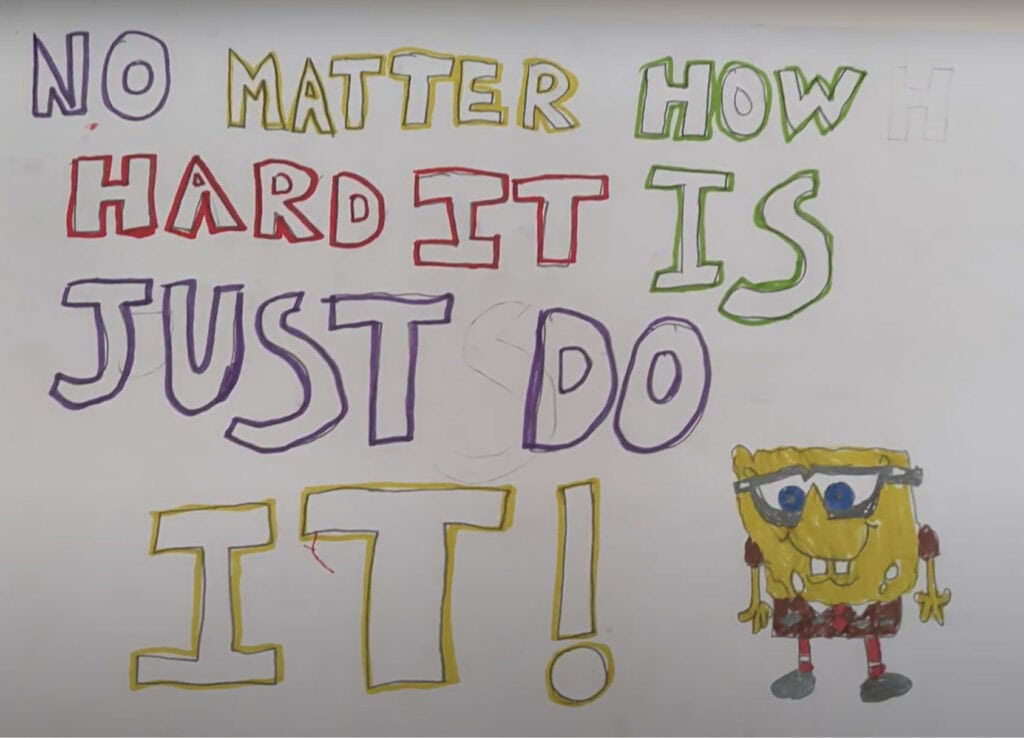 NO MATTER HOW H
HARD IT IS
JUST DO
IT!